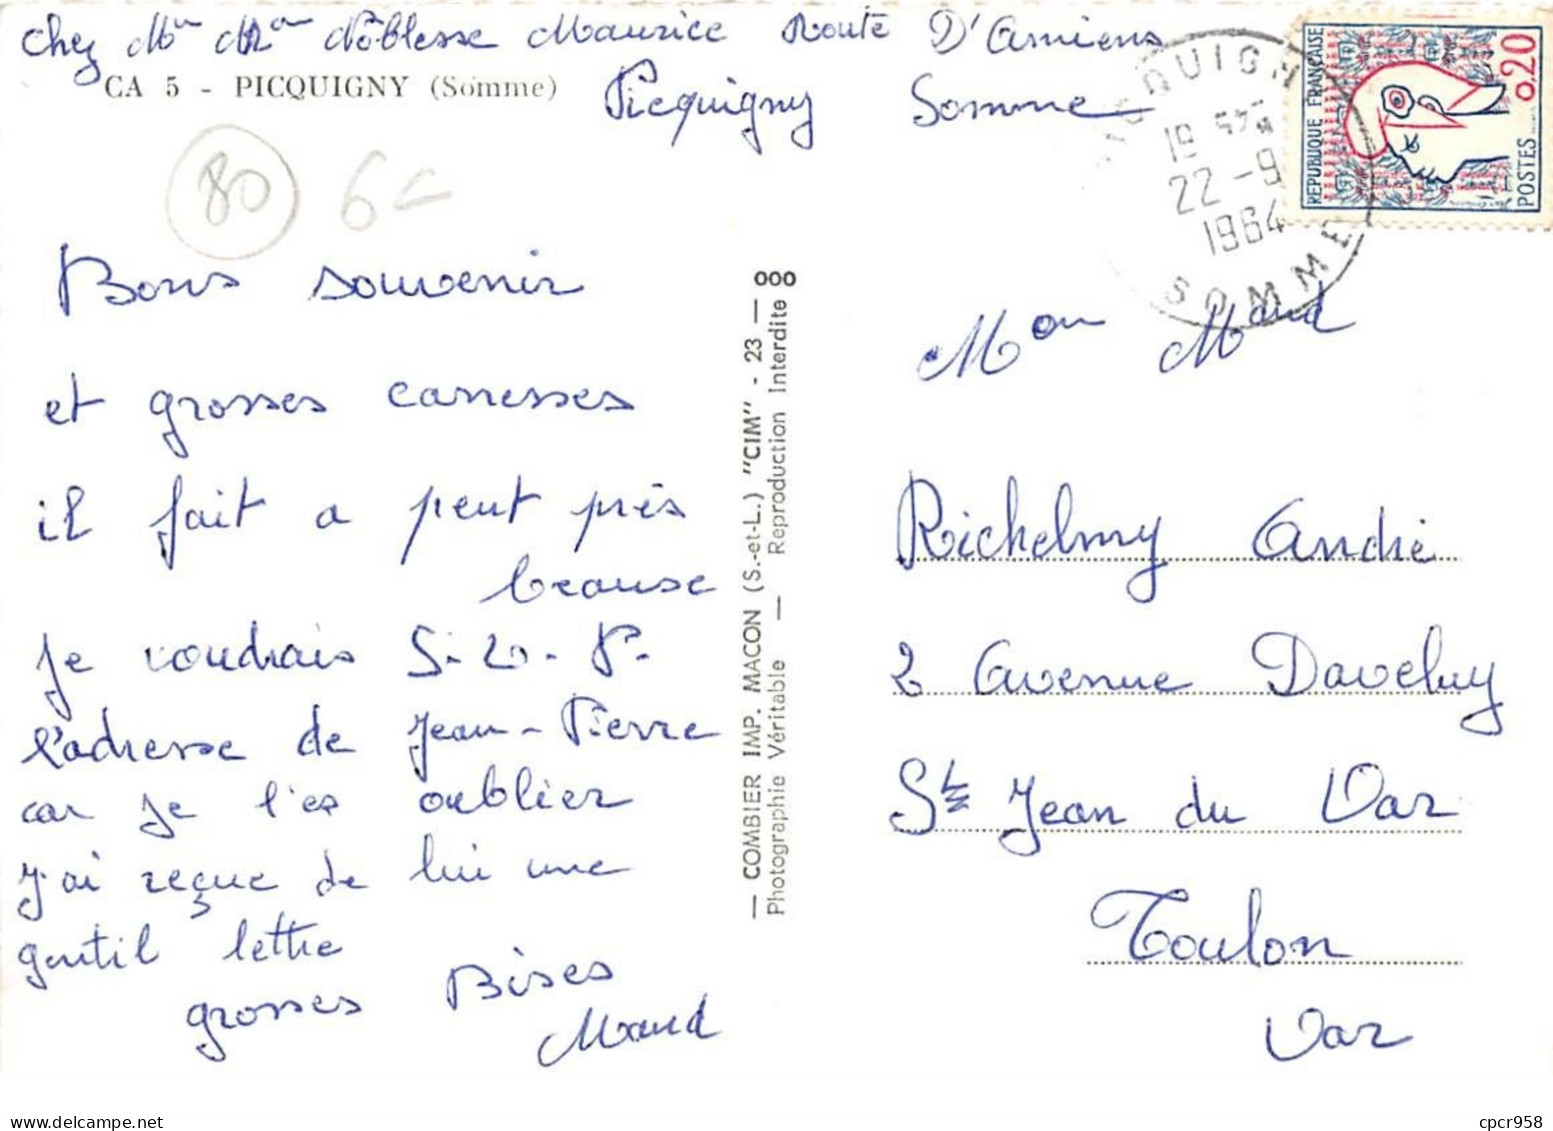 Chez Mr Mme Noblesse Maurice Route D'Amiens
Picquigny Somme
CA 5 - PICQUIGNY (Somme)
80 6
PICQUIGNY
19 H
22 - 9
1964
SOMME
REPUBLIQUE FRANÇAISE
0,20
POSTES
Bons souvenir
et grosses carresses
il fait a peut près
beause
Je voudrais S. 20. P.
l'adresse de Jean-Pierre
car je l'es oublier
J'ai reçue de lui une
gentil lettre
grosses Bises
Maud
— COMBIER IMP. MACON (S.-et-L.) "CIM" - 23 — 000
Photographie Véritable — Reproduction Interdite
Mon
Richelmy André
2 Avenue Daveluy
St Jean du Var
Toulon
Var
cpcr958